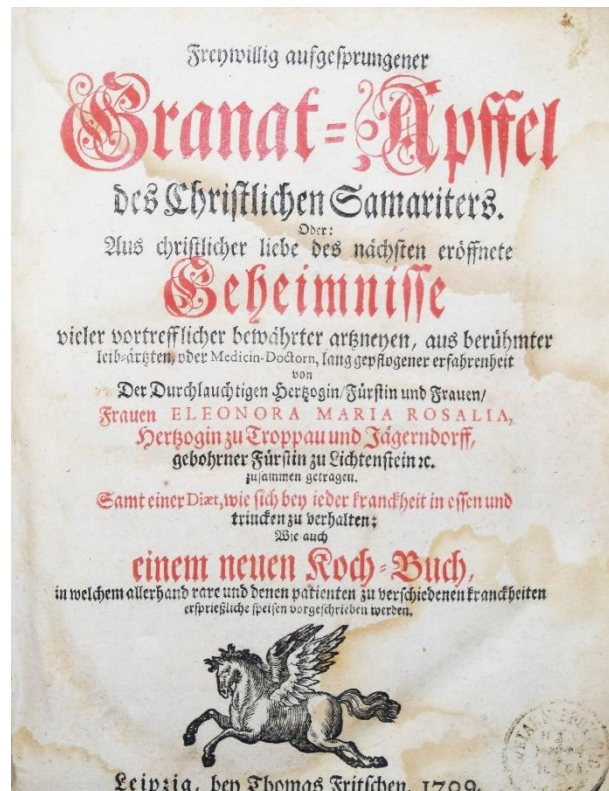 Freywillig aufgesprungener
Granat=Apffel
des Christlichen Samariters.
Oder:
Aus christlicher liebe des nächsten eröffnete
Geheimnisse
vieler vortrefflicher bewährter artzneyen, aus berühmter
leib-ärtzten, oder Medicin-Doctorn, lang gepflogener erfahrenheit
von
Der Durchlauchtigen Hertzogin/Fürstin und Frauen/
Frauen ELEONORA MARIA ROSALIA,
Hertzogin zu Troppau und Jägerndorff,
gebohrner Fürstin zu Lichtenstein ꝛc.
zusammen getragen.
Samt einer Diæt, wie sich bey ieder kranckheit in essen und
trincken zu verhalten;
Wie auch
einem neuen Koch=Buch,
in welchem allerhand rare und denen patienten zu verschiedenen kranckheiten
ersprießliche speisen vorgeschrieben werden.
Leipzig, bey Thomas Fritschen, 1709.